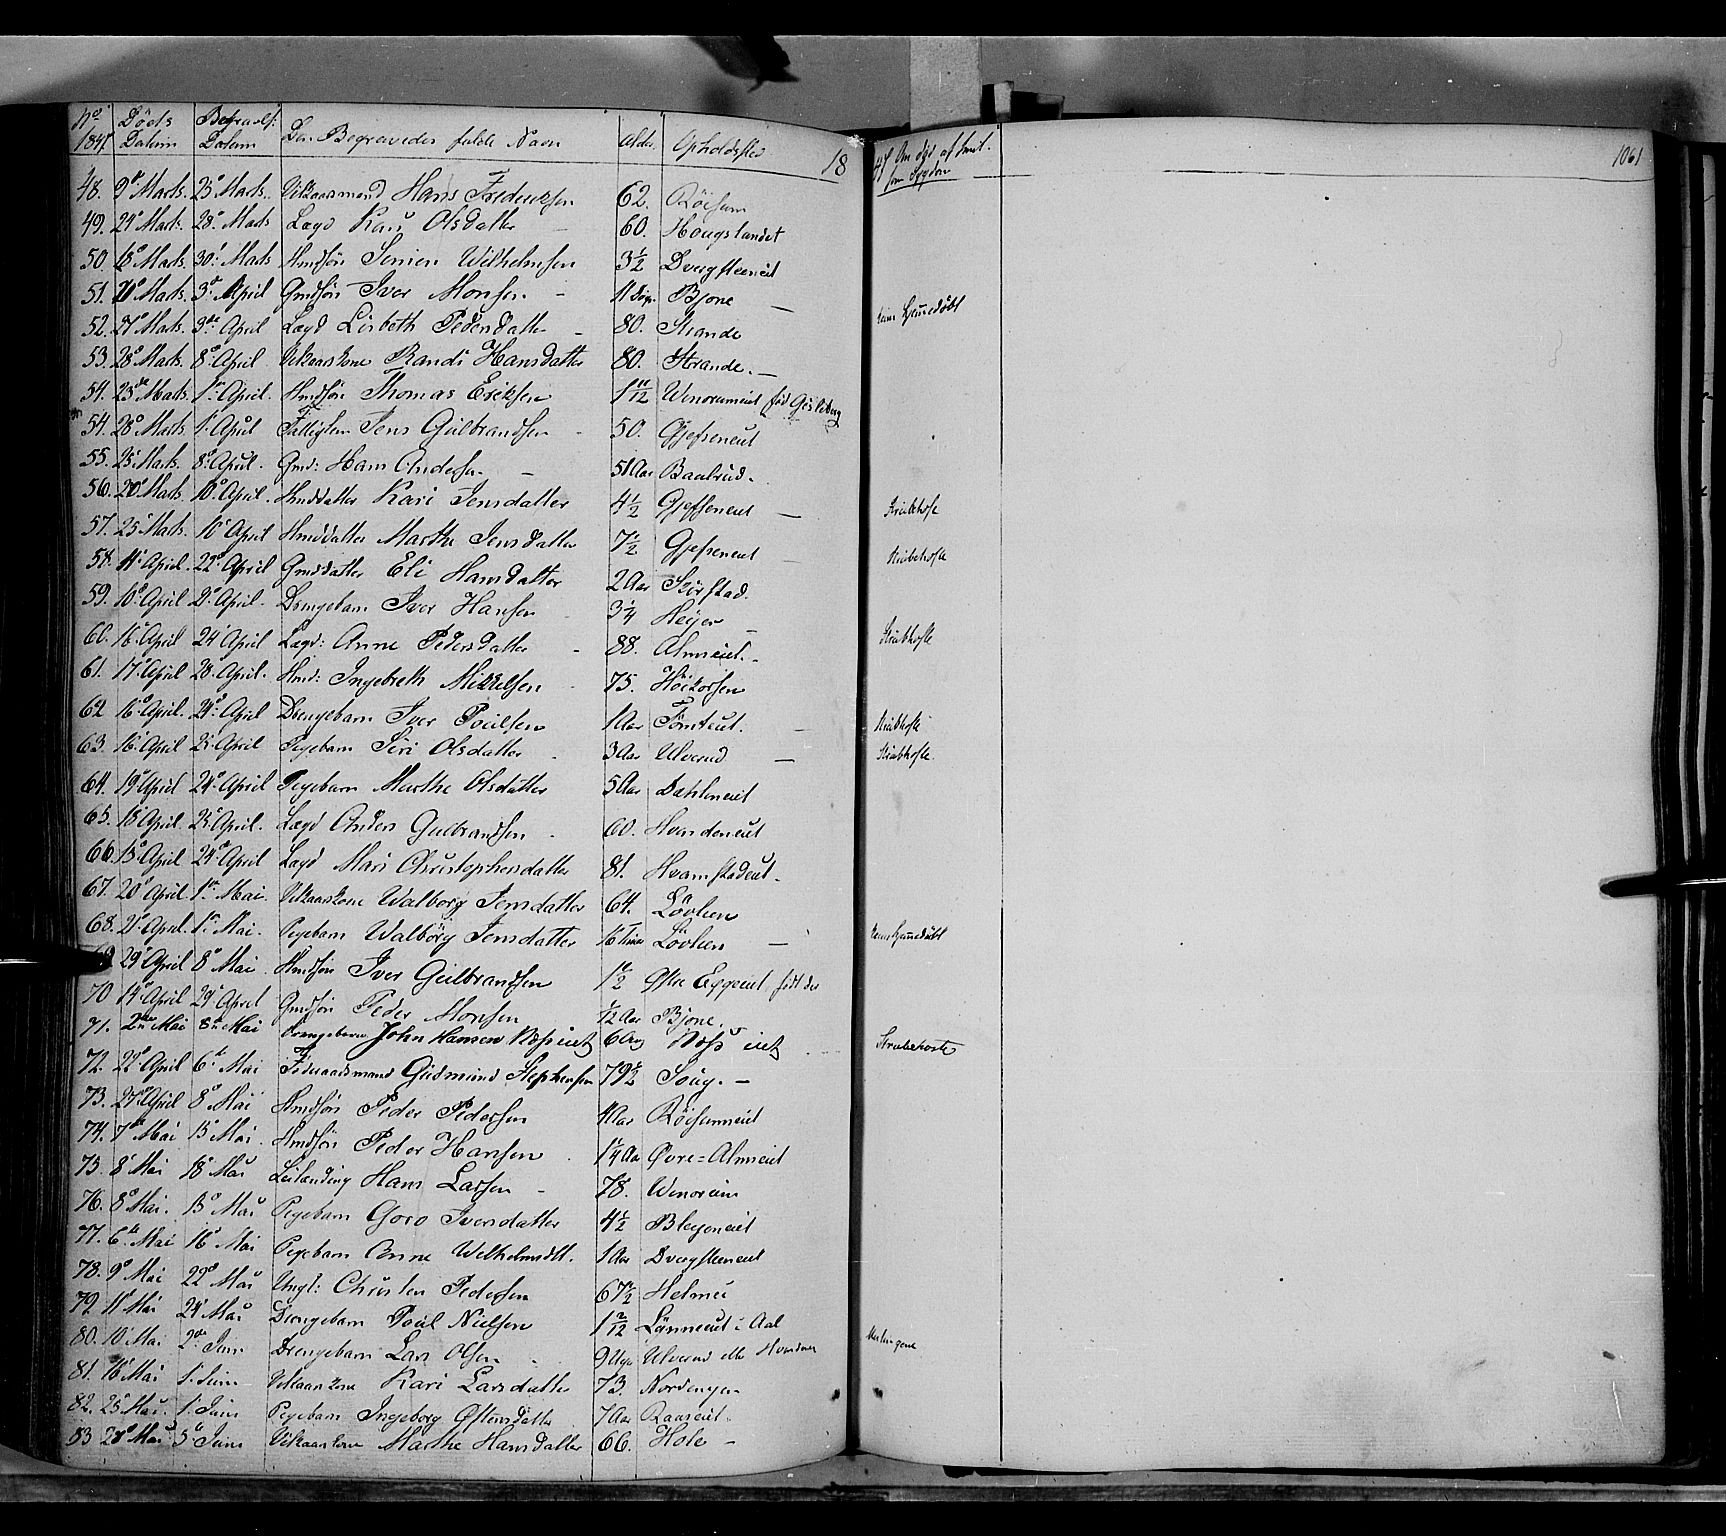 No 1847. Døds Datum Begravels: Datum Den Begravedes fulde Navn Alder. Opholdsted 18
47 Om død af smit. som Sygdom 1061
48. 9de Marts. 23de Marts. Vilkaarsmand Hans Frederiksen 62. Röisum
49. 24de Marts. 28de Marts Lægd Kari Olsdatter 60. Haugslandet
50. 18de Marts. 30te Marts Hmdsön Simen Wilhelmsen 3 1/2 Dvergsteneiet
51. 20de Marts. 3die April Gmdsön Iver Monsen 11 Dage Bjone
52. 27de Marts. 3die April Lægd Lisbeth Pedersdatter 80. Strande
53. 28de Marts. 8de April Vilkaarskone Randi Hansdatter 80. Strande.
54. 23de Marts. 1ste April. Hmdsön Thomas Eriksen 1 11/12 Wenorumeiet föd Gisleberg
54. 28de Marts 1ste April Fattiglem Jens Gulbrandsen 50. Gjefseneiet
55. 25de Marts. 8de April. Gmd: Hans Andersen 51 Aar Baalrud.
56. 20de Marts. 10de April. Hmddatter Kari Jensdatter 4 1/2 Gjefseneiet Strubehoste
57. 25de Marts. 10de April Hmddatter Marthe Jensdatter 7 1/2 Gjefseneiet Strubehoste
58. 11te April. 22de April Gmddatter Eli Hansdatter 2 Aar Skiörstad.
59. 10de April 21de April. Drengebarn Iver Hansen 3 1/4 Høyer Strubehoste
60. 16de April 24de April Lægd: Anne Pedersdatter 88. Almeiet.
61. 17de April 28de April. Hmd: Ingebreth Mikkelsen 75. Höikorsen
62 16de April. 24de April Drengebarn Iver Poulsen 1 Aar Tömteiet. Strubehoste
63. 16de April 25de April Pigebarn Siri Olsdatter 3 Aar Ulverud Strubehoste.
64. 19de April 24de April Pigebarn Marthe Olsdatter 5 Aar Dæhleneiet
65. 18de April. 25de April. Lægd Anders Gulbrandsen 60. Hvindeneiet
66. 15de April 24de April Lægd Mari Christophersdatter 81. Hvamstadeiet.
67. 20de April 1ste Mai. Vilkaarskone Walborg Jensdatter 64. Lövlien
68. 21de April. 1ste Mai. Pigebarn Walborg Jensdatter 16 Timer Lövlien
69. 29de April 8de Mai Hmdsön Iver Gulbrandsen 1 1/2 Østre Eggeeiet födt der
70 14de April 29de April Gmdsön Peder Monsen 1/12 Aar Bjone.
71. 2den Mai 8de Mai Drengebarn John Hansen Næsseiet 6 Aar Næss eiet Strubehoste
72. 22de April 6te Mai Föderaadsmand Gudmund Stephensen 79 1/2 Soug.
73. 27de April 8de Mai Hmdsön Peder Pedersen 4 Aar Röisumeiet
74. 7de Mai 15de Mai. Hmdsön Peder Hansen 1 1/4 Aar Øvre=Almseiet
75. 8de Mai 18de Mai Leilænding Hans Larsen 78. Wenorum
76. 8de Mai. 15de Mai Pigebarn Goro Iversdatter 4 1/2 Blegeneiet
77. 6te Mai 16de Mai Pigebarn Anne Wilhelmsdtt. 1 Aar Dvergsteneiet
78. 9de Mai 22de Mai Ungk: Christen Pedersen 67 1/2 Helmei
79. 11te Mai 24de Mai Drengebarn Poul Nielsen 1 2/12 Lönneeiet i Aal
80. 10de Mai 2den Juni Drengebarn Lars Olsen 9 Uger Ulverud eller Hvinden
81. 16de Mai 1ste Juni Vilkaarskone Kari Larsdatter 73. Nordengen
82. 25de Mai. 1ste Juni Pigebarn Ingeborg Østensdatter 7 Aar Raaseiet.
83 28de Mai 5te Juni Vilkaarskone Marthe Hansdatter 66. Hole